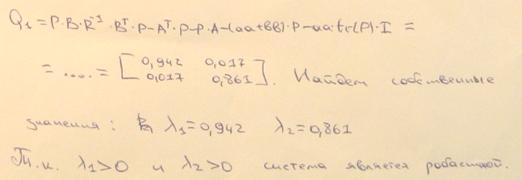 Q₁=P·B·R⁻¹·Bᵀ·P-Aᵀ·P-P·A-(αα+ββ)·P-αα·tr(P)·I =
= ..... = [0,942 0,017
0,017 0,861]. Найдем собственные
значения: λ₁=0,942 λ₂=0,861
Т.к. λ₁>0 и λ₂>0 система является робастной.